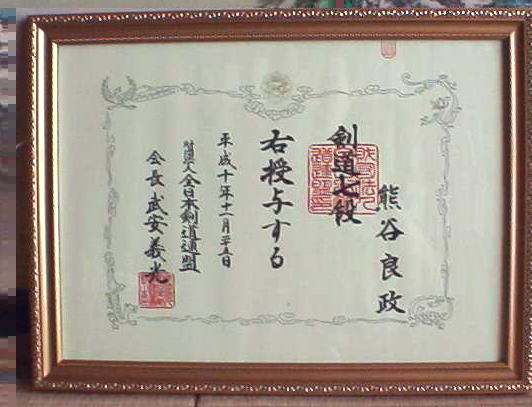 熊谷良政
剣道七段
右授与する
平成十年十一月二十五日
財団法人全日本剣道連盟
会長武安義光